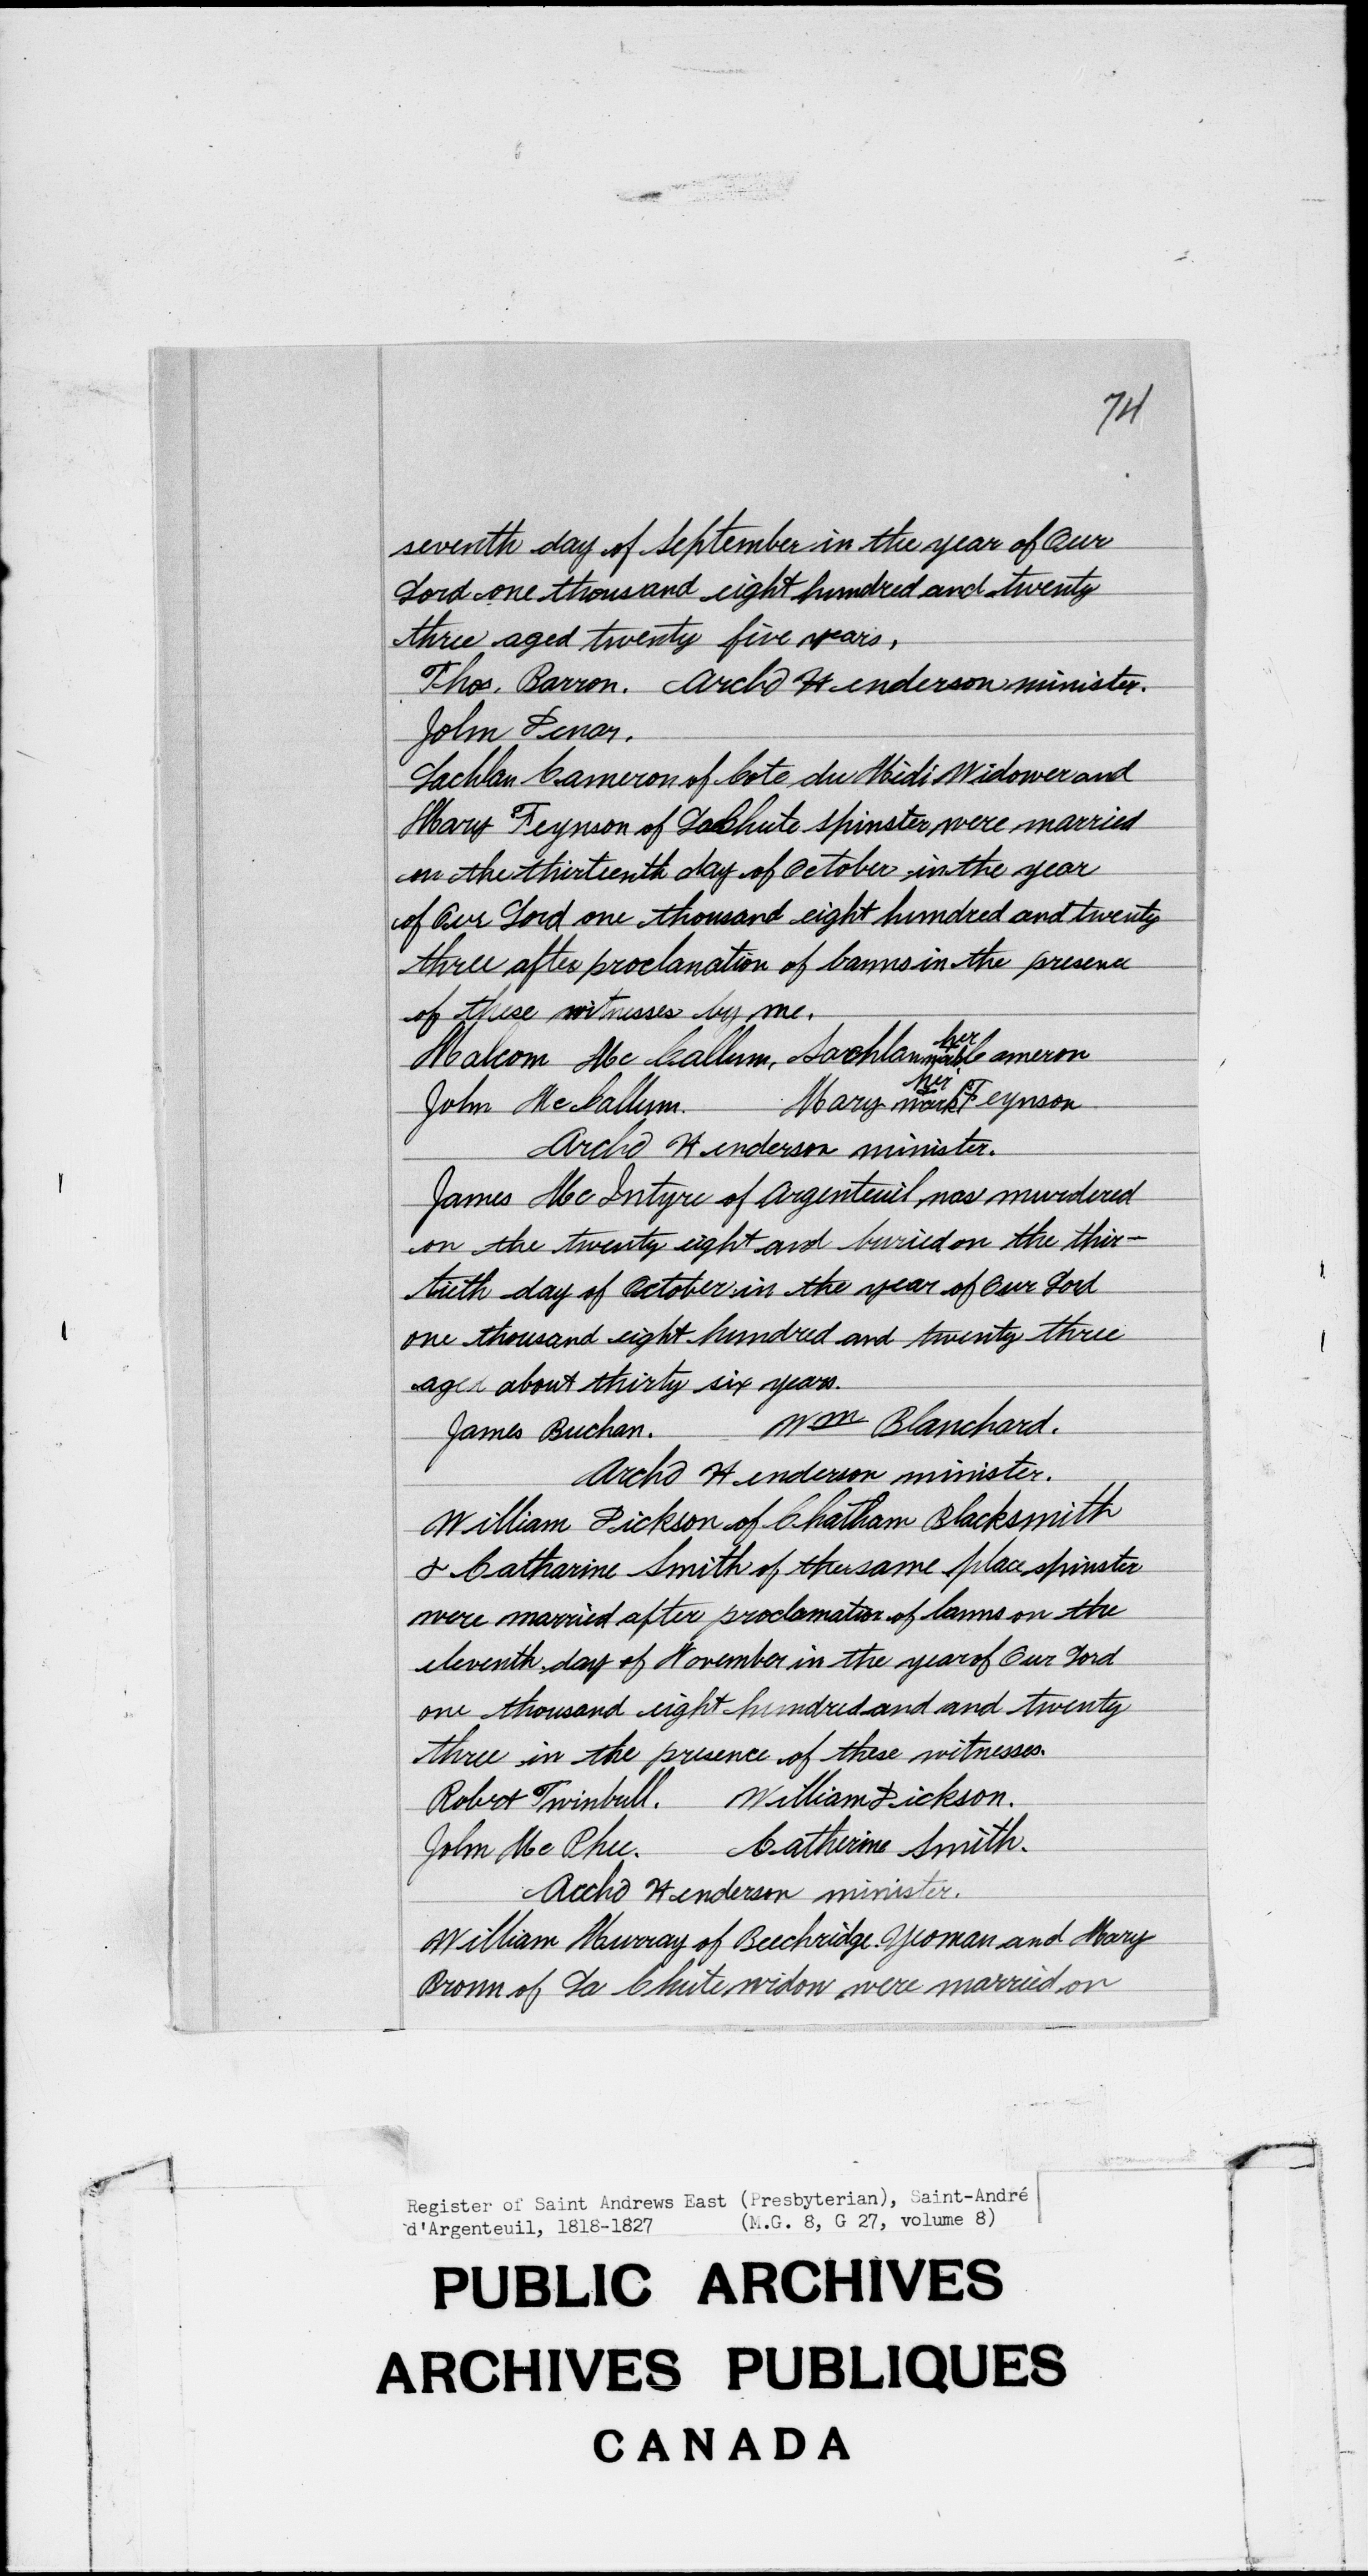 74
seventh day of September in the year of Our
Lord one thousand eight hundred and twenty
three aged twenty five years,
Thos. Barron. Archd Henderson minister.
John Penar.
Lachlan Cameron of Cote du Midi Widower and
Mary Feynson of LaChute spinster were married
on the thirteenth day of October in the year
of Our Lord one thousand eight hundred and twenty
three after proclanation of banns in the presence
of these witnesses by me.
Malcom Mc Callum. Lachlan her mark Cameron
John Mc Callum. Mary her mark Feynson
Archd Henderson minister.
James Mc Intyre of Argenteuil was murdered
on the twenty eight and buried on the thir-
tieth day of October in the year of Our Lord
one thousand eight hundred and twenty three
aged about thirty six years.
James Buchan. Wm Blanchard.
Archd Henderson minister.
William Dickson of Chatham Blacksmith
& Catharine Smith of the same place spinster
were married after proclamation of banns on the
eleventh day of November in the year of Our Lord
one thousand eight hundred and and twenty
three in the presence of these witnesses.
Robert Twinbull. William Dickson.
John Mc Phee. Catherine Smith.
Archd Henderson minister.
William Murray of Beechridge Yeoman and Mary
Brown of La Chute widow were married on
Register of Saint Andrews East (Presbyterian), Saint-André
d'Argenteuil, 1818-1827 (M.G. 8, G 27, volume 8)
PUBLIC ARCHIVES
ARCHIVES PUBLIQUES
CANADA